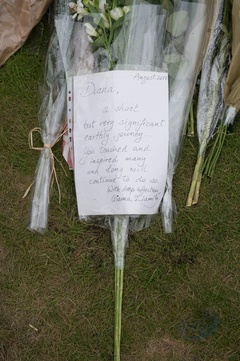 August
Diana,
a short
but very significant
earthly journey.
You touched and
inspired many
and long will
continue to do so.
With deep affection,
Family